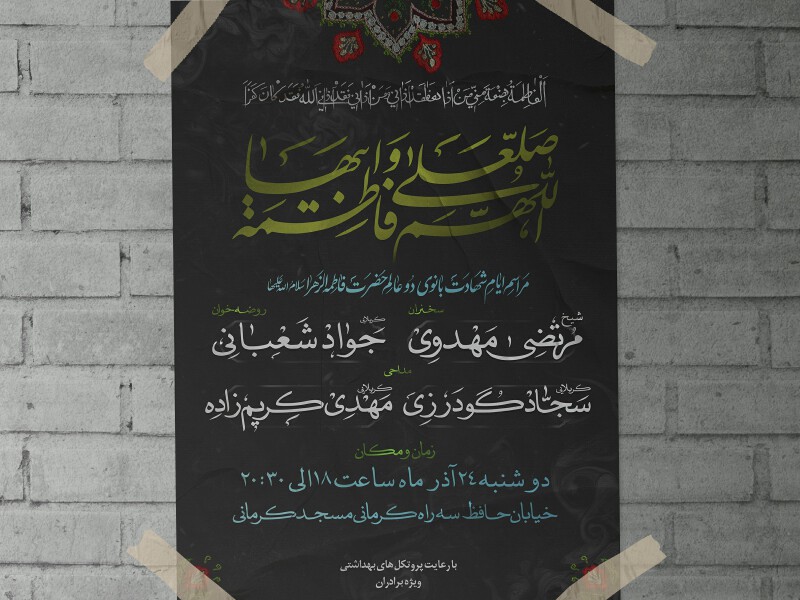 اللّهمّ صلّ علی فاطمة وابیها
مراسم ایام شهادت بانوی دو عالم حضرت فاطمة الزهرا سلام الله علیها
سخنران
شیخ مرتضی مهدوی
روضه خوان
کربلایی جواد شعبانی
مداحی
کربلایی سجّاد گودرزی کربلایی مهدی کریم زاده
زمان و مکان
دوشنبه ۲۴ آذر ماه ساعت ۱۸ الی ۲۰:۳۰
خیابان حافظ سه راه کرمانی مسجد کرمانی
با رعایت پروتکل های بهداشتی
ویژه برادران